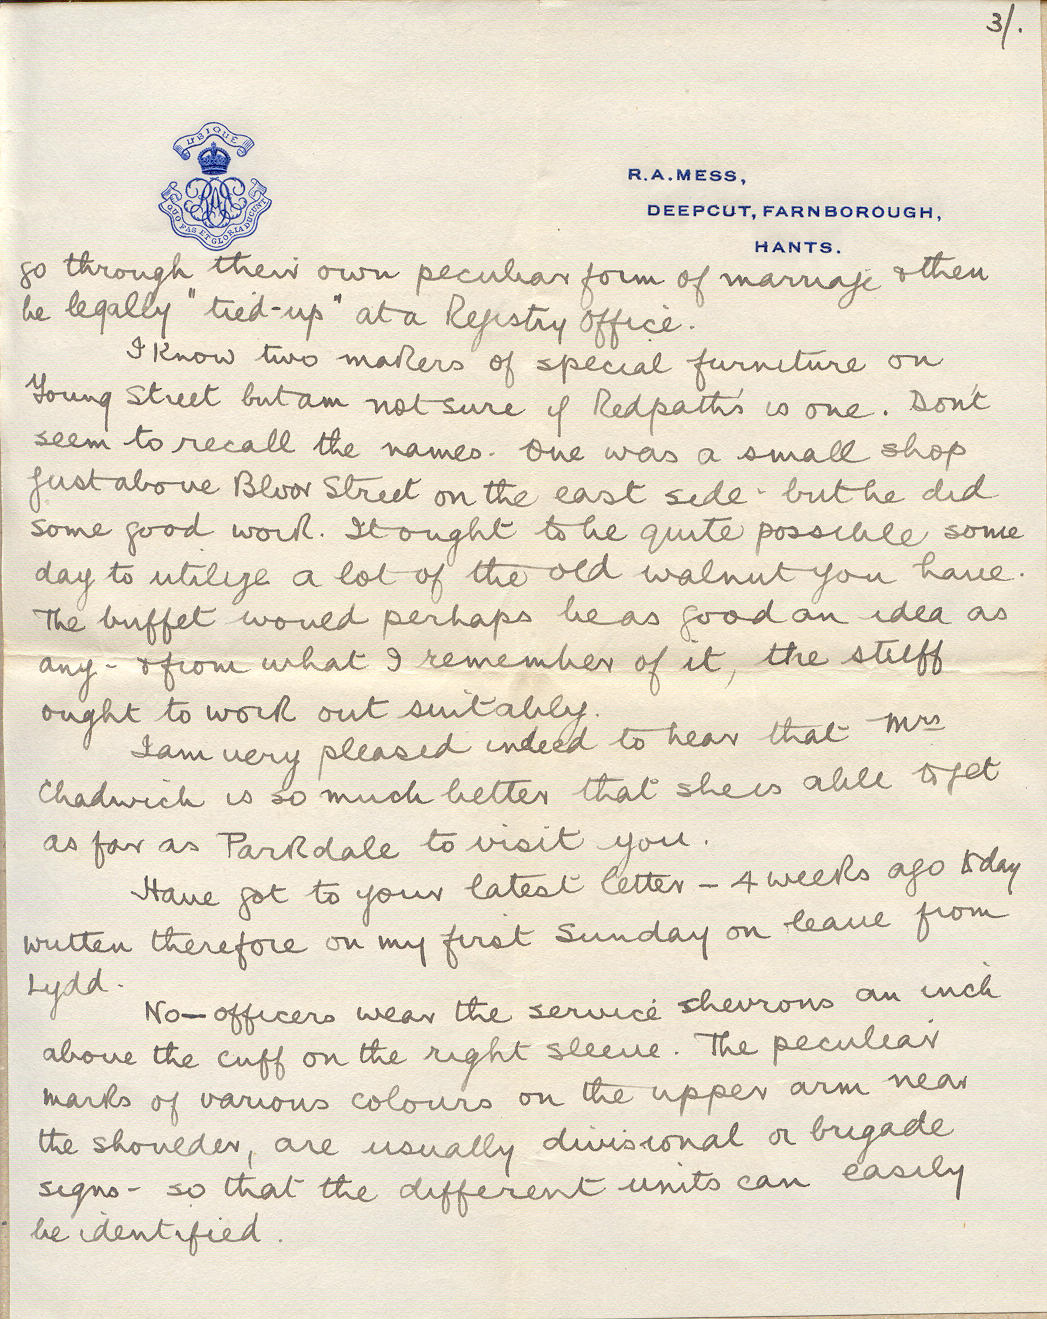 3/.
UBIQUE
QUO FAS ET GLORIA DUCUNT
R.A. MESS,
DEEPCUT, FARNBOROUGH,
HANTS.
go through their own peculiar form of marriage & then
be legally "tied-up" at a Registry Office.
I know two makers of special furniture on
Young Street but am not sure if Redpath's is one. Don't
seem to recall the names. One was a small shop
just above Bloor Street on the east side - but he did
some good work. It ought to be quite possible some
day to utilize a lot of the old walnut you have.
The buffet would perhaps be as good an idea as
any - & from what I remember of it, the stuff
ought to work out suitably.
I am very pleased indeed to hear that Mrs
Chadwick is so much better that she is able to get
as far as Parkdale to visit you.
Have got to your latest letter - 4 weeks ago today
written therefore on my first Sunday on leave from
Lydd.
No - officers wear the service shevrons an inch
above the cuff on the right sleeve. The peculiar
marks of various colours on the upper arm near
the shoulder, are usually divisional or brigade
signs - so that the different units can easily
be identified.